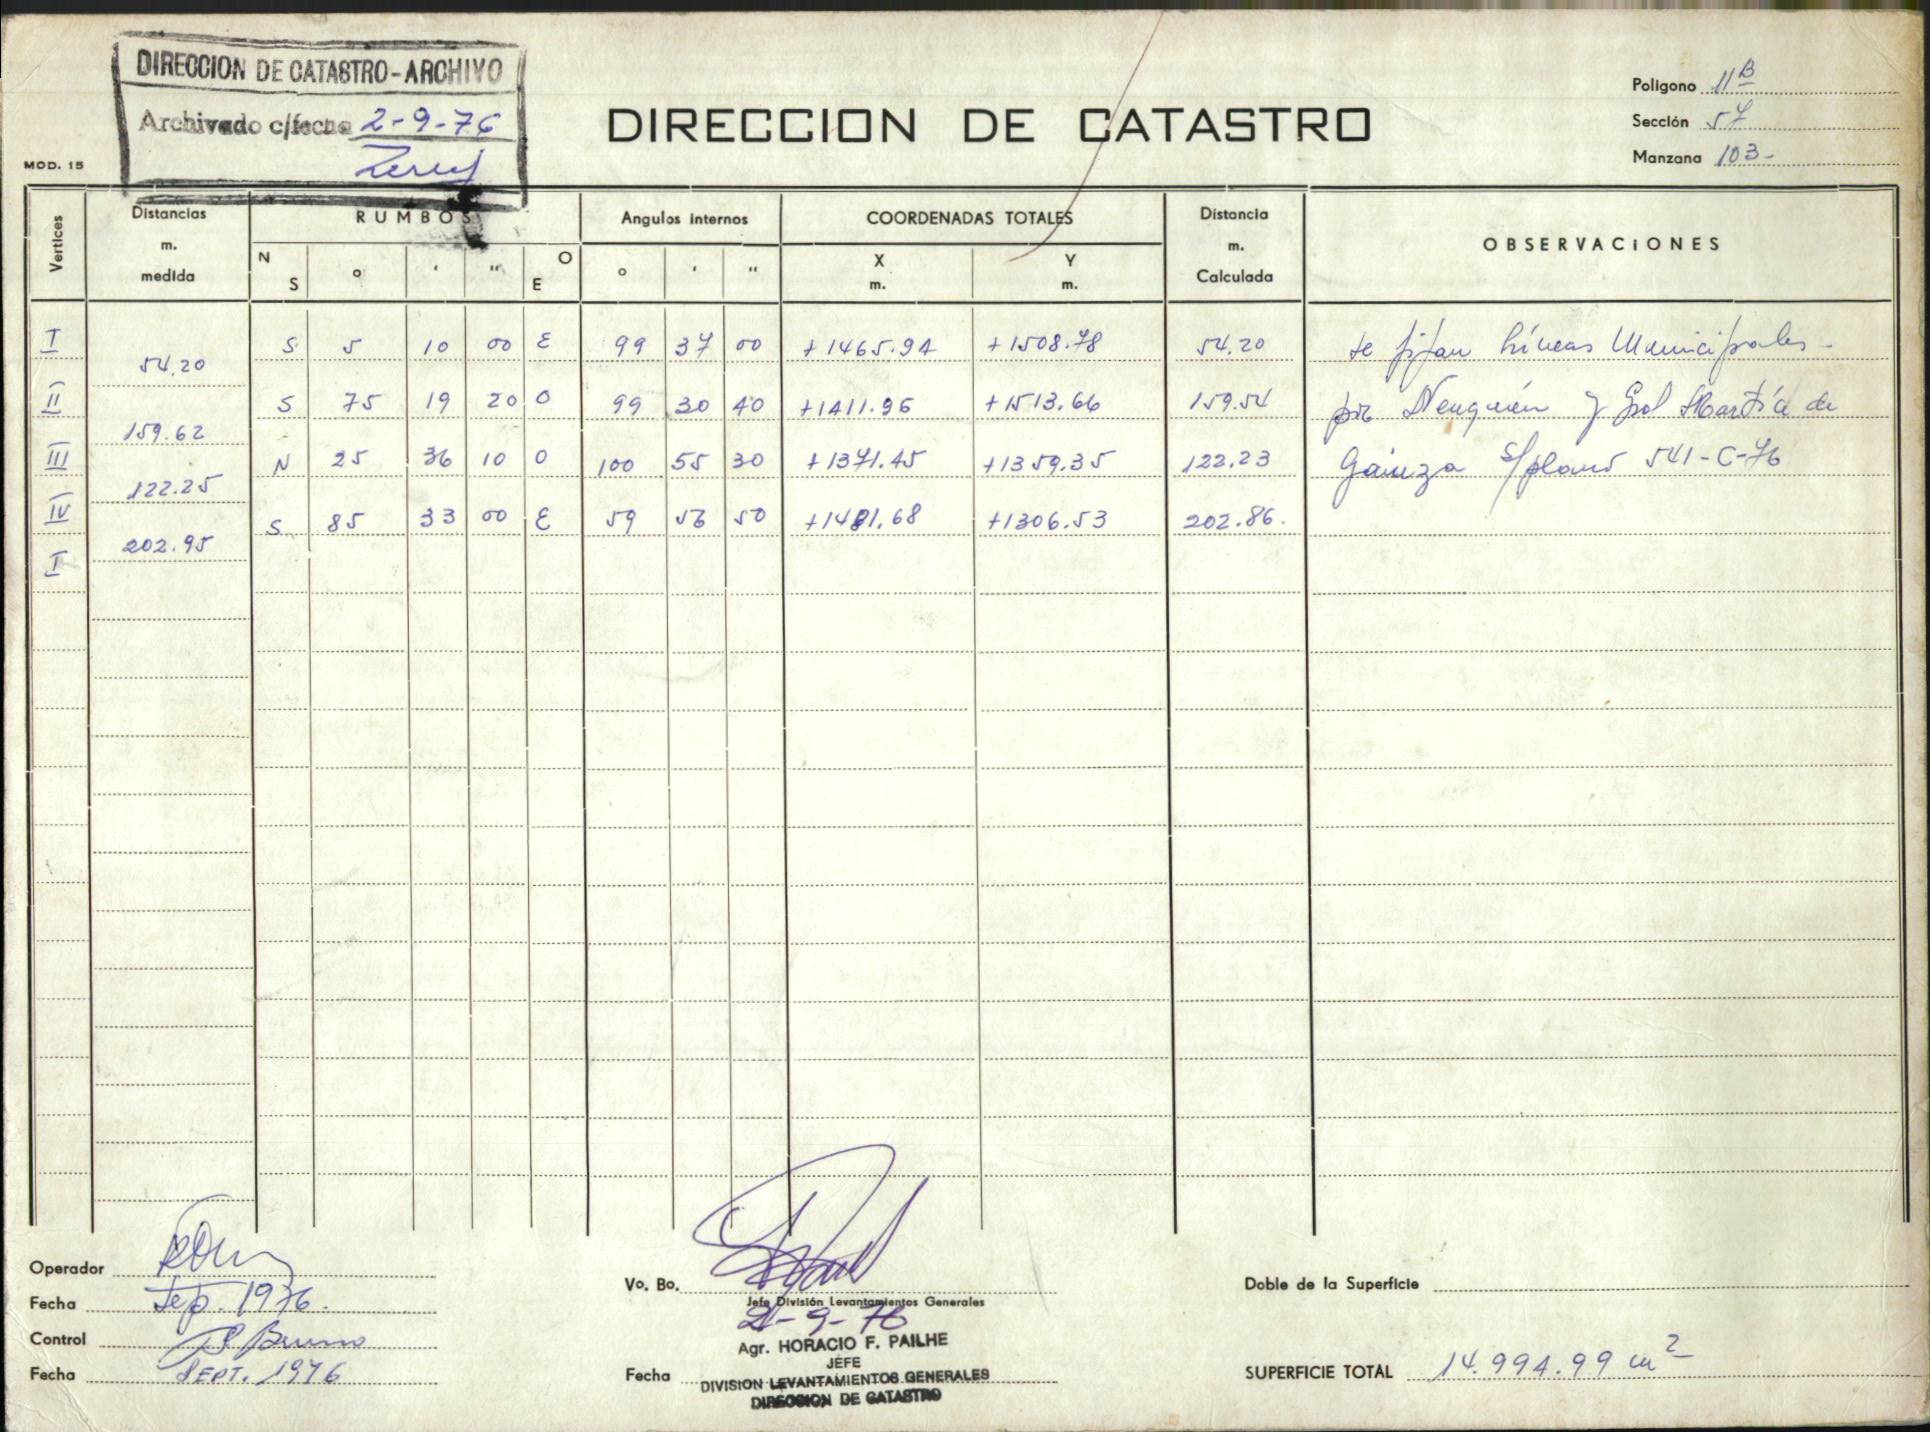 DIRECCION DE CATASTRO-ARCHIVO
Archivado c/fecha 2-9-76
DIRECCION DE CATASTRO
Poligono 11B
Sección 57
Manzana 103-
MOD. 15
Vertices Distancias m. medida RUMBOS Angulos internos COORDENADAS TOTALES Distancia m. Calculada OBSERVACIONES
N S ° ' " O E ° ' " X m. Y m.
I S 5 10 00 E 99 37 00 +1465.94 +1508.78 54.20 se fijan Líneas Municipales-
54.20
II S 75 19 20 O 99 30 40 +1411.96 +1513.66 159.54 por Neuquén y Gral Martín de
159.62
III N 25 36 10 O 100 55 30 +1371.45 +1359.35 122.23 Gainza s/plano 541-C-76
122.25
IV S 85 33 00 E 59 56 50 +1481.68 +1306.53 202.86.
202.95
I
Operador
Fecha Sep. 1976.
Control Bruno
Fecha SEPT. 1976
Vo. Bo.
Jefe División Levantamientos Generales
2-9-76
Agr. HORACIO F. PAILHE
JEFE
Fecha DIVISION LEVANTAMIENTOS GENERALES
DIRECCION DE CATASTRO
Doble de la Superficie
SUPERFICIE TOTAL 14.994.99 m2